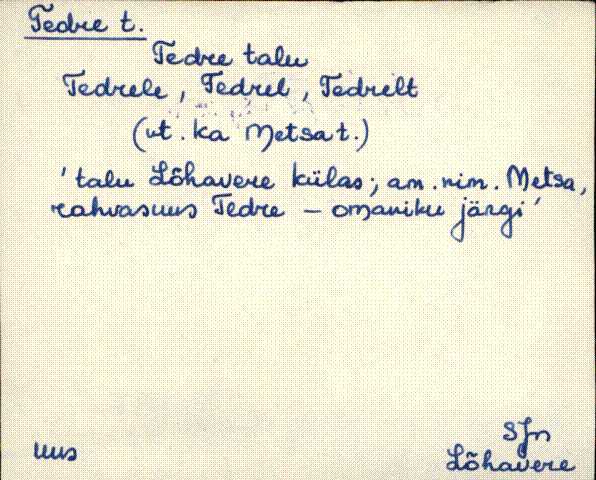 Tedre t.
Tedre talu
Tedrele, Tedrel, Tedrelt
(vt. ka Metsa t.)
'talu Lõhavere külas; am. nim. Metsa,
rahvasuus Tedre – omaniku järgi'
SJn
uus
Lõhavere